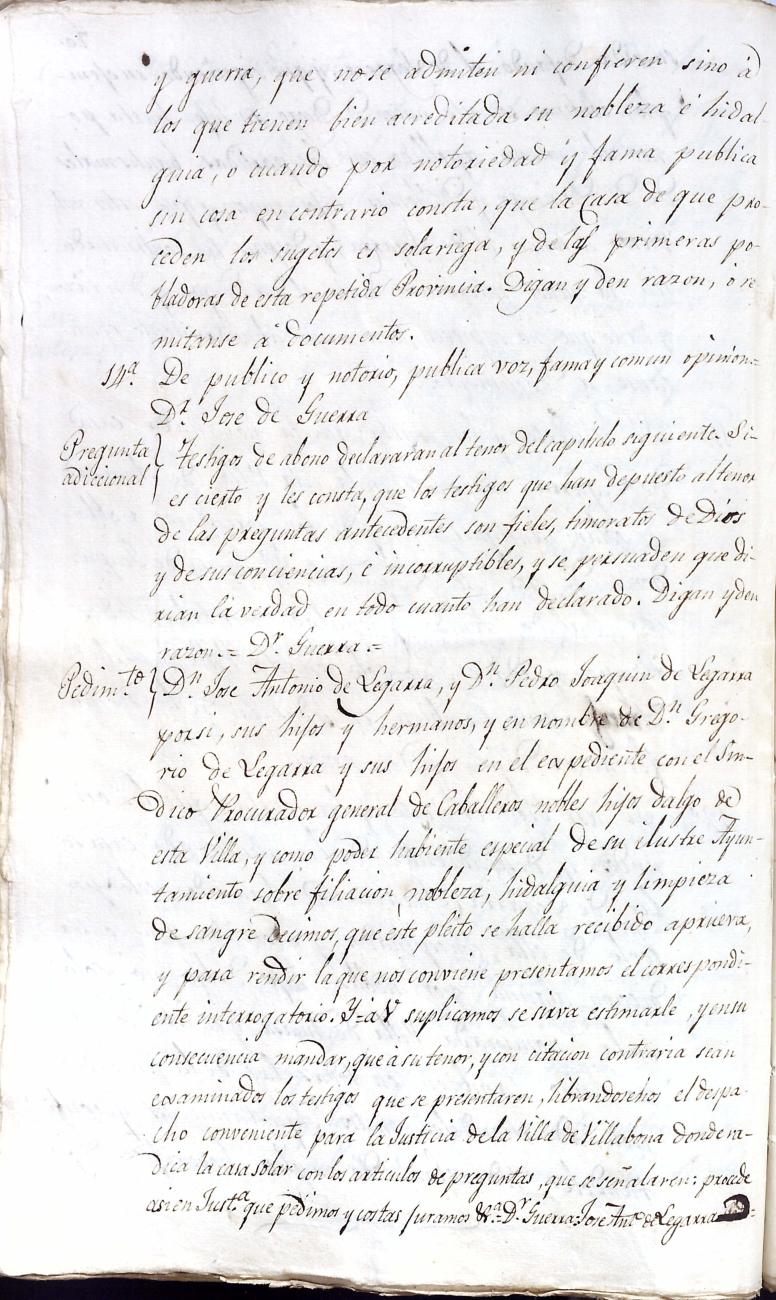 y guerra, que no se admiten ni confieren sino à
los que tienen bien acreditada su nobleza é hidal-
guia, ò cuando por notoriedad y fama publica
sin cosa en contrario consta, que la Casa de que pro-
ceden los sugetos es solariega, y de las primeras po-
bladoras de esta repetida Provincia. Digan y den razon, ò re
mitanse à documentos.
14ª. De publico y notorio, publica voz, fama y comun opinion =
Dr. Jose de Guerra
Pregunta adiccional } Testigos de abono declararan al tenor del capitulo siguiente. Si-
es cierto y les consta, que los testigos que han depuesto al tenor
de las preguntas antecedentes son fieles, timoratos de Dios
y de sus conciencias, é incorruptibles, y se persuaden que di-
rian la verdad en todo cuanto han declarado. Digan y den
razon. = Dr. Guerra. =
Pedim.to } Dn. Jose Antonio de Legarra, y Dn. Pedro Joaquin de Legarra
por si, sus hijos y hermanos, y en nombre de Dn. Grego-
rio de Legarra y sus hijos en el expediente con el Sin-
dico Procurador general de Caballeros nobles hijos dalgo de
esta Villa, y como poder habiente especial de su ilustre Ayun-
tamiento sobre filiacion, nobleza, hidalguia y limpieza
de sangre Decimos, que este pleito se halla recibido aprueva,
y para rendir la que nos conviene presentamos el correspondi-
ente interrogatorio. Y = à V suplicamos se sirva estimarle, y en su
consecuencia mandar, que à su tenor, y con citacion contraria sean
examinados los testigos que se presentaren, librandosenos el despa-
cho conveniente para la Justicia de la Villa de Villabona donde ra-
dica la casa solar con los articulos de preguntas, que se señalaren: procede
asi en Just.ª que pedimos y costas juramos &.ª = Dr. Guerra = Jose Ant.º de Legarra